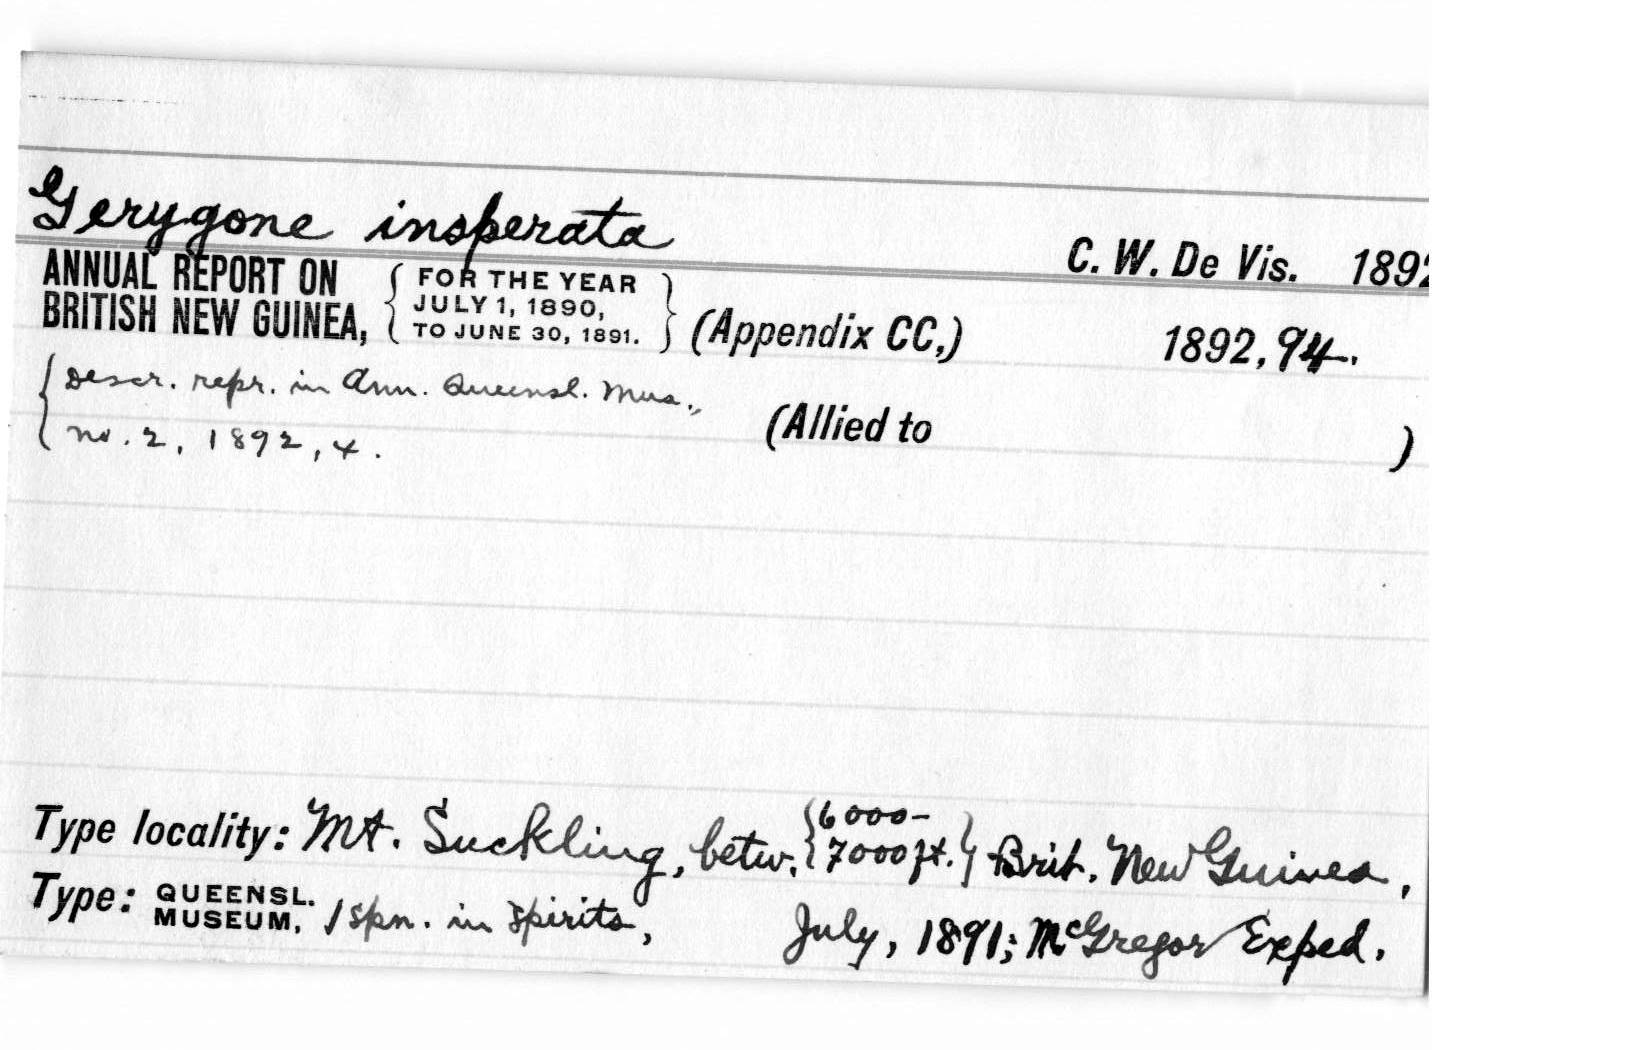 Gerygone insperata
C. W. De Vis. 1892
ANNUAL REPORT ON BRITISH NEW GUINEA, { FOR THE YEAR JULY 1, 1890, TO JUNE 30, 1891. } (Appendix CC,) 1892, 94.
{ Descr. repr. in Ann. Queensl. Mus.,
no. 2, 1892, 4.
(Allied to )
Type locality: Mt. Suckling, betw. { 6000-7000 ft. } Brit. New Guinea,
Type: QUEENSL. MUSEUM, 1 spn. in spirits, July, 1891; McGregor Exped.